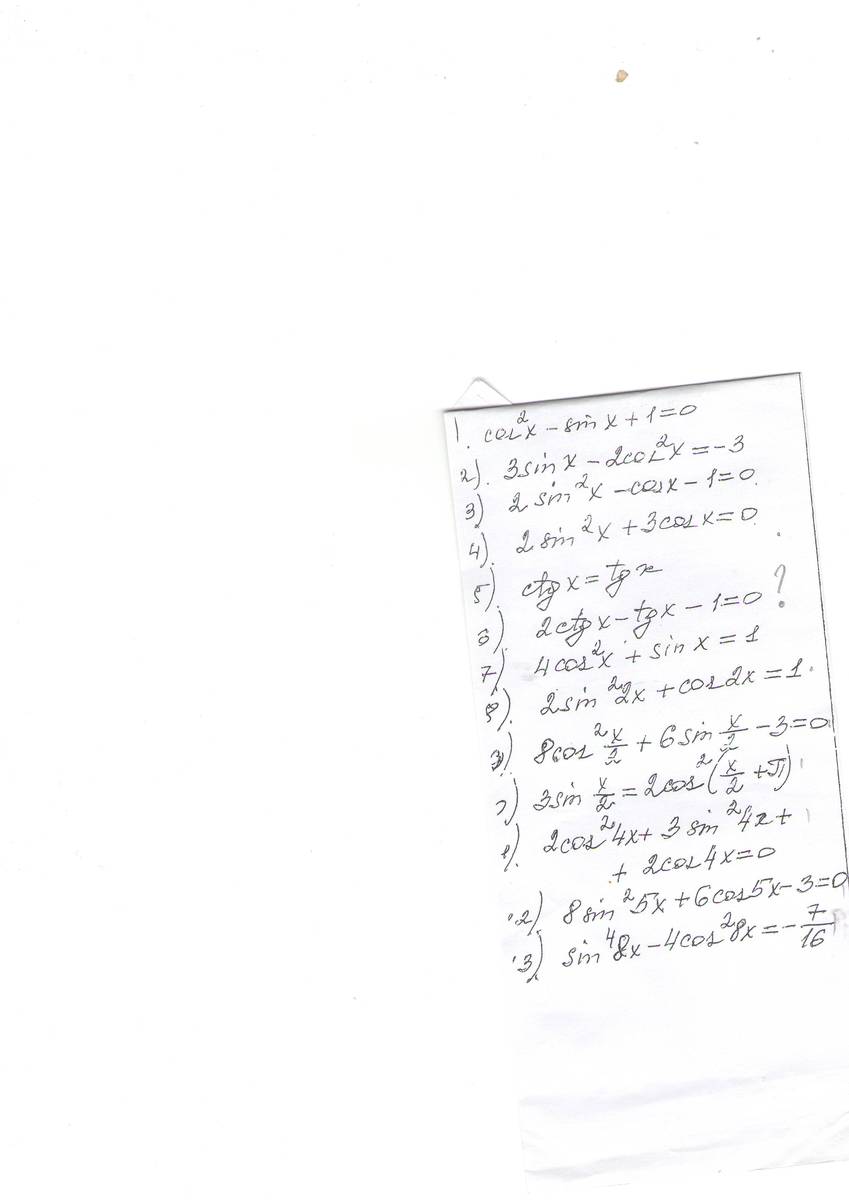 1. cos²x – sin x + 1 = 0
2). 3sin x – 2cos²x = –3
3) 2 sin²x – cosx – 1 = 0.
4). 2 sin²x + 3cos x = 0.
5). ctg x = tg x
6). 2ctg x – tg x – 1 = 0 ?
7) 4cos²x + sin x = 1
8). 2sin²2x + cos 2x = 1.
8cos² x/2 + 6 sin x/2 – 3 = 0
) 3sin x/2 = 2cos² (x/2 + π)
1). 2cos²4x + 3 sin²4x +
+ 2cos 4x = 0
2). 8 sin²5x + 6cos5x – 3 = 0
3) sin⁴8x – 4cos²8x = – 7/16